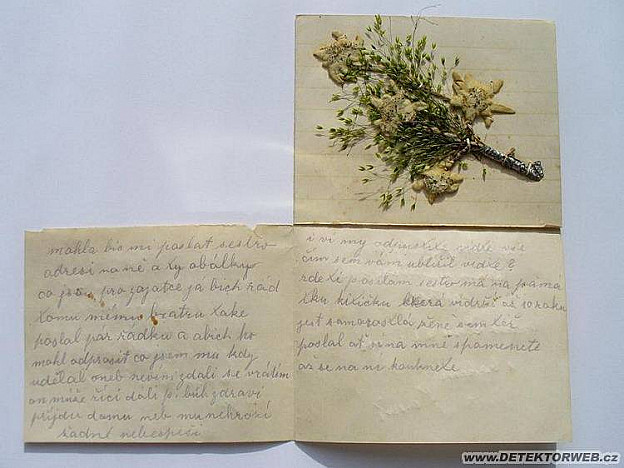 mohla bis mi poslat sestro
adresi na ně a ty obálky
co jsou pro gajatce ja bich rád
tomu mému bratru take
poslal pár řádku a abich ho
mohl odprosit co jsem mu kdy
udělal oneb nevim zdali se vrátim
on může říci dáli pi bůh zdraví
přijdu domu neb mu nehrozí
žadné nebespeči
i vi my odpustťe vidťe vše
čim sem vám ublížil vidťe?
zde ti posilam sestro má na pamá
tku kitičku která vidrží až 10 roku
jest samorostlá pěně sem
poslal at si na mně spamenete
až se na ni kouknete
www.DETEKTORWEB.cz